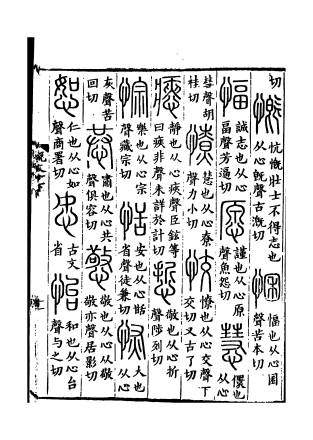 切慨忼慨壯士不得志也从心旣聲古溉切悃愊也从心困聲苦本切
愊誠志也从心畐聲芳逼切愿謹也从心原聲魚怨切慧儇也从心
彗聲胡桂切憭慧也从心尞聲力小切恔憭也从心交聲下交切又古了切
瘱靜也从心㾜聲臣鉉等曰㾜非聲未詳於計切悊敬也从心折聲陟列切
悰樂也从心宗聲藏宗切恬安也从心甛省聲徒兼切恢大也从心
灰聲苦回切恭肅也从心共聲俱容切憼敬也从心从敬敬亦聲居影切
恕仁也从心如聲商署切㣽古文省怡和也从心台聲與之切